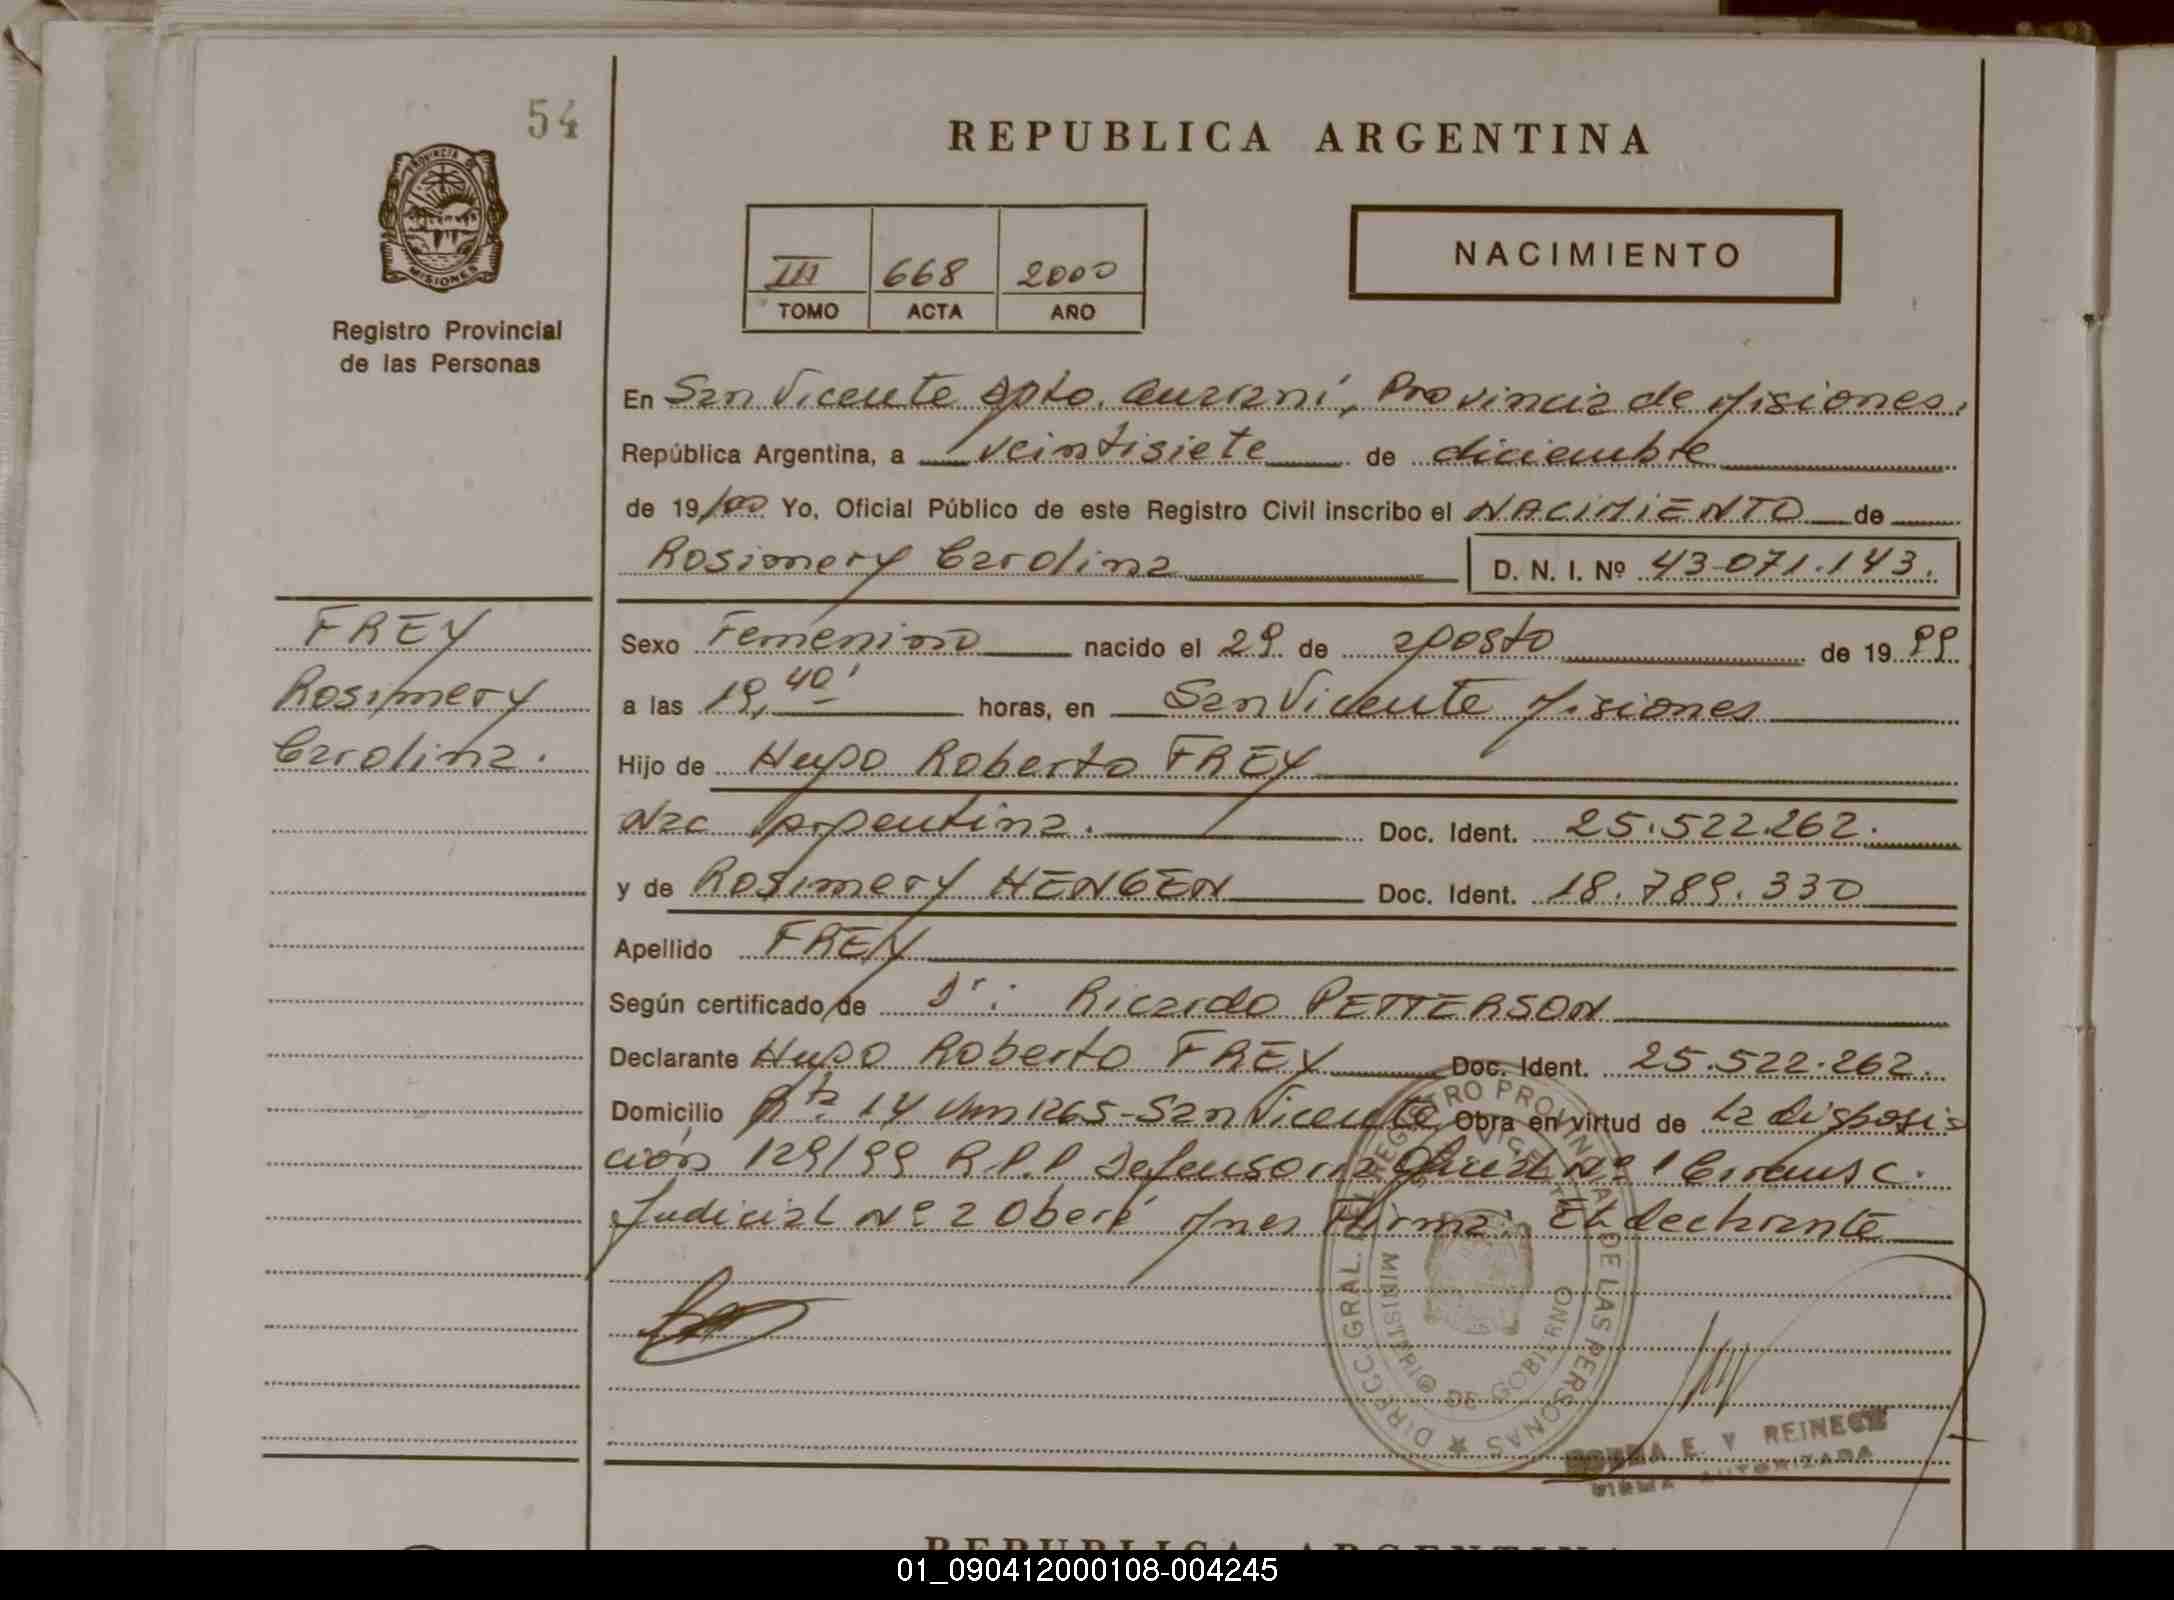 54
REPUBLICA ARGENTINA
PROVINCIA DE
MISIONES
Registro Provincial
de las Personas
III 668 2000
TOMO ACTA AÑO
NACIMIENTO
En San Vicente Dpto. Guarani, Provincia de Misiones.
República Argentina, a veintisiete de diciembre
de 19/00 Yo, Oficial Público de este Registro Civil inscribo el NACIMIENTO de
Rosimery Carolina D. N. I. Nº 43-071.143.
FREY
Rosimery
Carolina.
Sexo Femenino nacido el 29 de agosto de 19 99
a las 19,40' horas, en San Vicente Misiones
Hijo de Hugo Roberto FREY
Nac Argentina. Doc. Ident. 25.522.262.
y de Rosimery HENGEN Doc. Ident. 18.789.330
Apellido FREY
Según certificado de Dr: Ricardo PETTERSON
Declarante Hugo Roberto FREY Doc. Ident. 25.522.262.
Domicilio Rta. 14 Km 1265-San Vicente Obra en virtud de La disposi
ción 129/99 R.P.P Defensoria Oficial Nº 1 Circunsc.
Judicial Nº 2 Oberá Mnes Firma: El declarante
DIRECC. GRAL. DEL REGISTRO PROVINCIAL DE LAS PERSONAS
MINISTERIO DE GOBIERNO
E. V. REINECK
FIRMA AUTORIZADA
REPUBLICA ARGENTINA
01_090412000108-004245